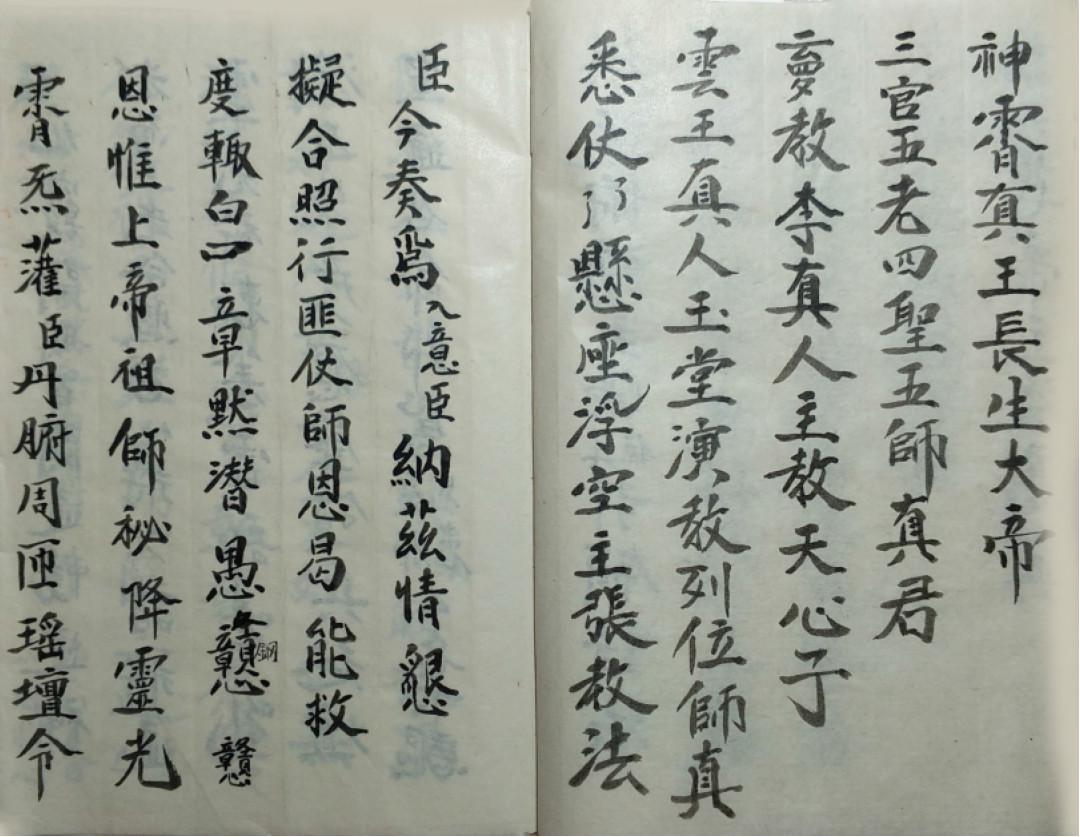 神霄真王長生大帝
三官五老四聖五師真君
教李真人主教天心子
雲王真人玉堂演教列位師真
悉仗了了懸座浮空主張教法
臣今奏爲入意臣納茲情懇
擬合照行匪仗師恩曷能救
度輒白一章默潛愚戇
鋼
戇
恩惟上帝祖師秘降靈光
霄炁灌臣丹腑周匝瑤壇令